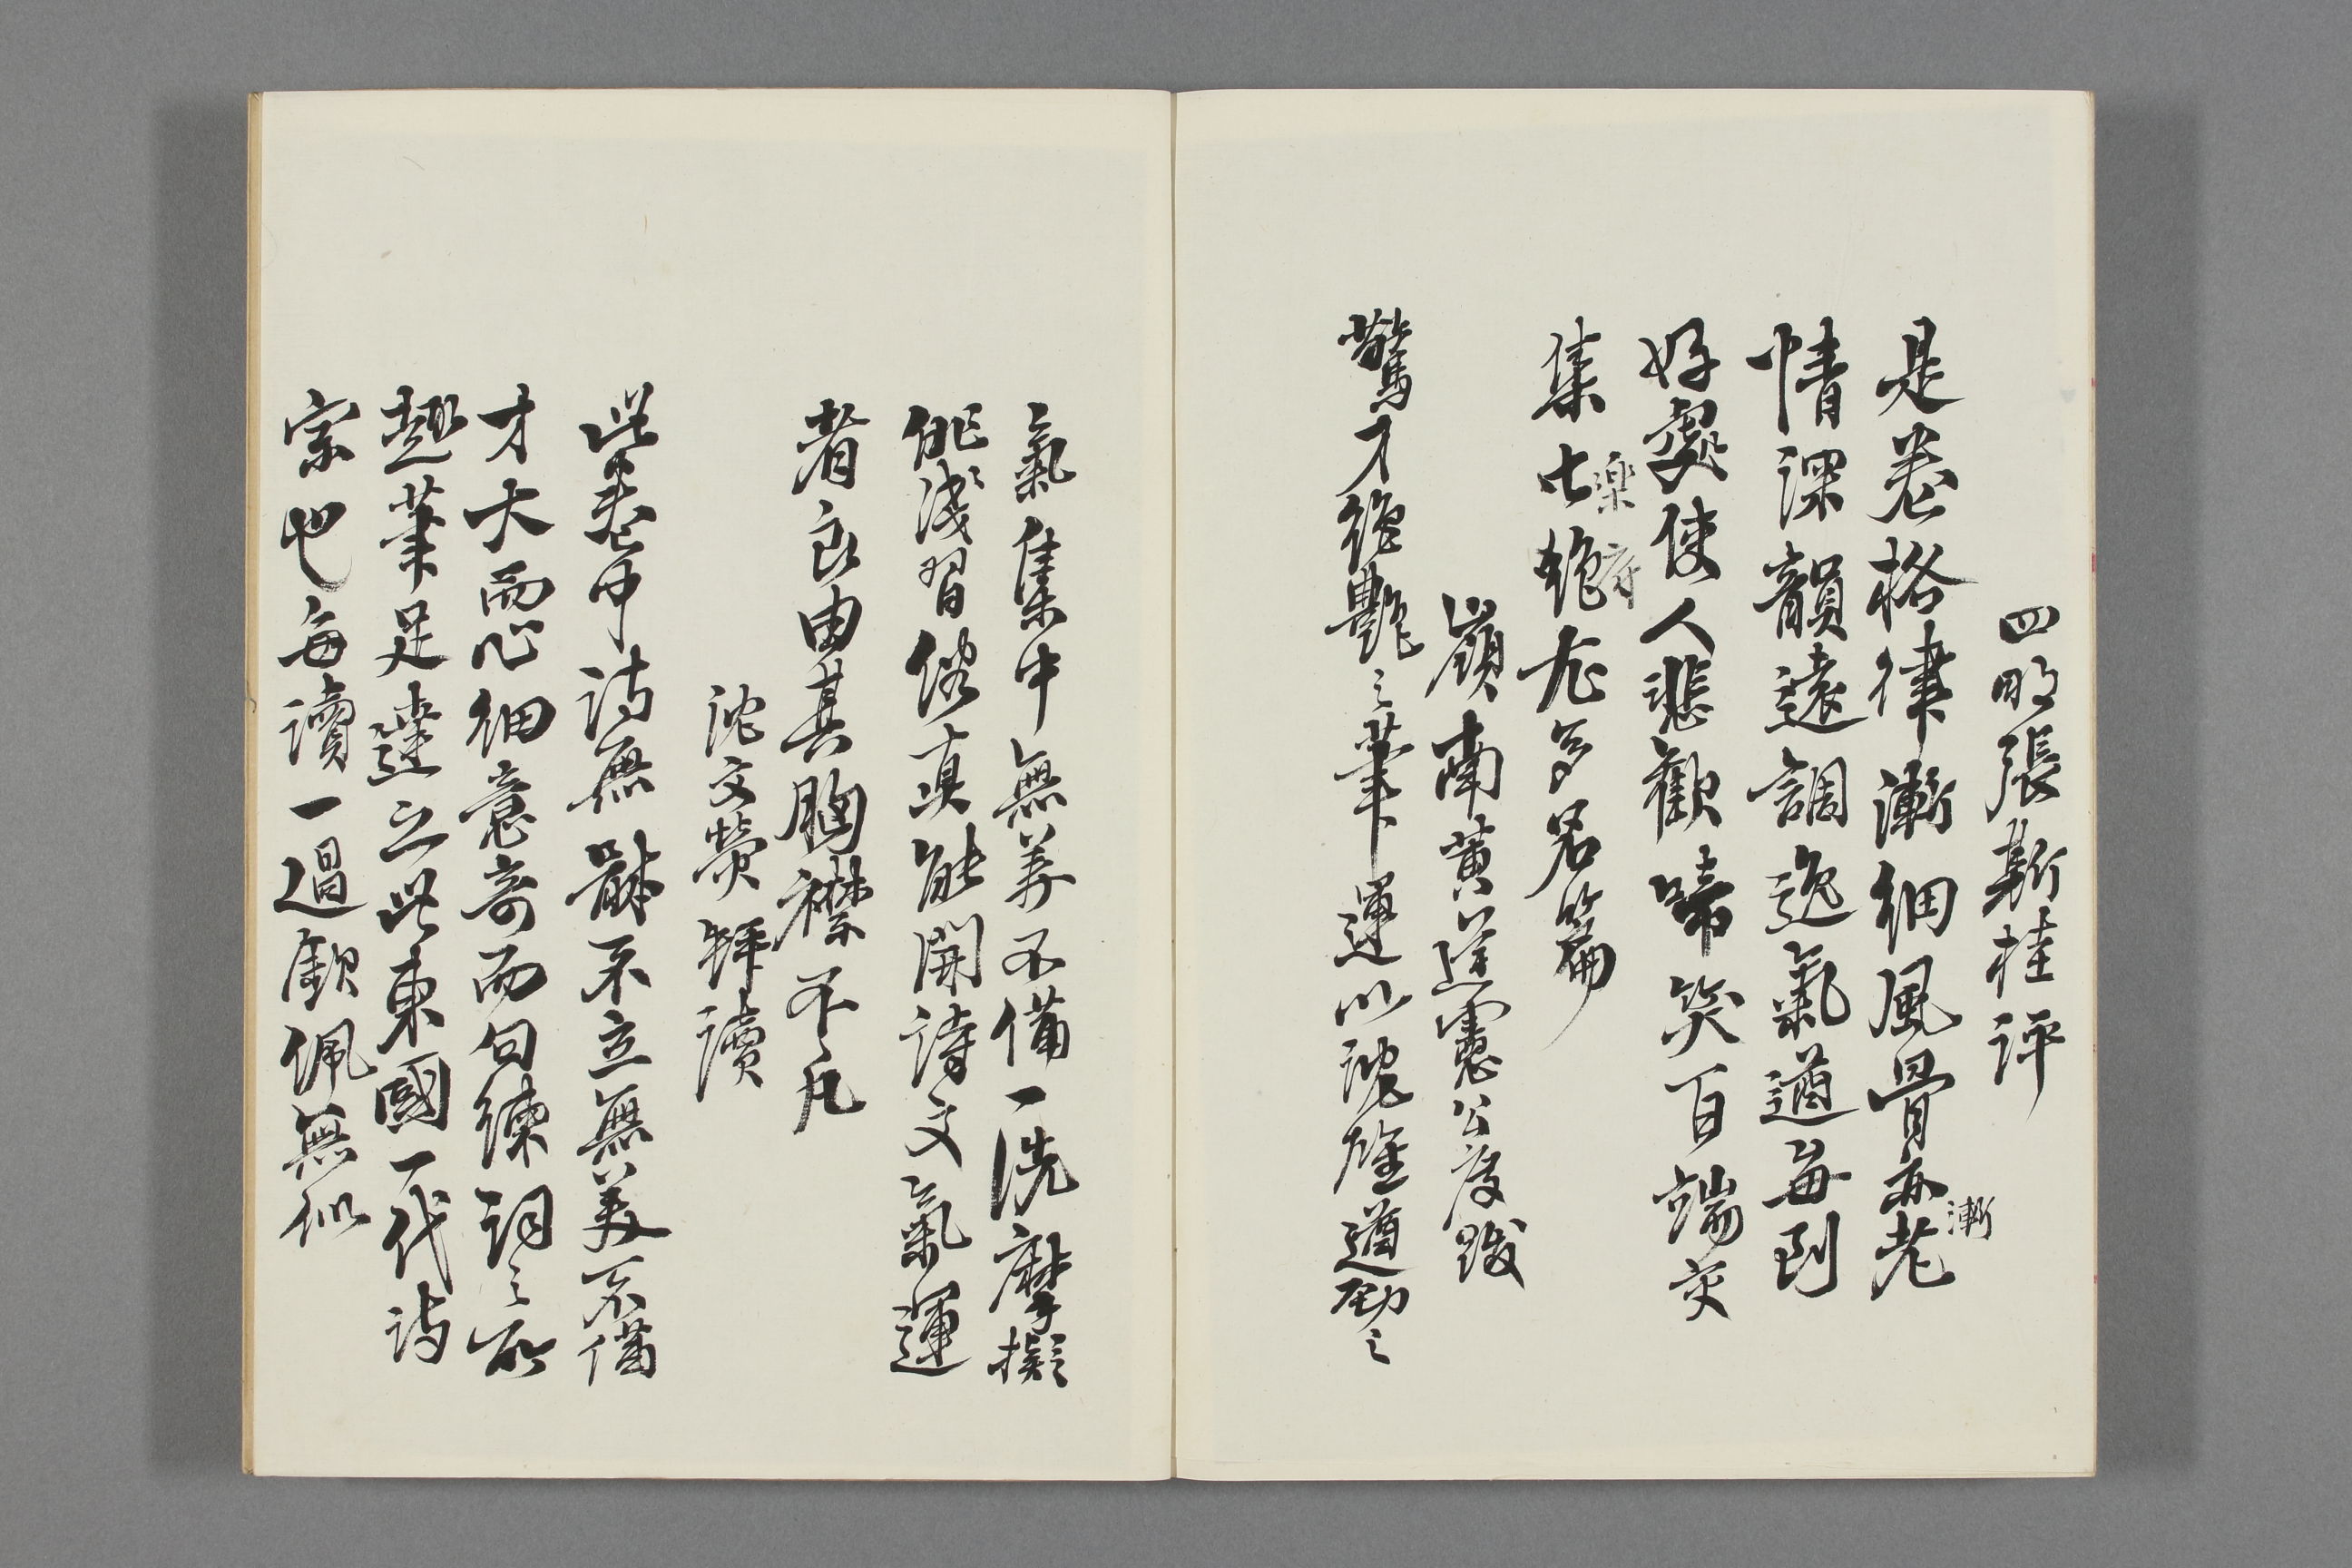 四明張斯桂評
是卷格律漸細風骨亦老
漸
情深韻遠調逸氣遒每到
好處使人悲歡啼笑百端交
集七絶尤多名篇
樂府
嶺南黄遵憲公度跋
驚才絶艷之筆運以沈雄遒勁之
氣集中無美不備一洗摩擬
誹淺習俗真能開詩文氣運
者良由其胸襟不凡
沈文熒拜讀
此卷中诗無體不立無美不備
才大而心細意奇而句練詞之所
趣筆足達之此東國一代诗
宗也每讀一過歡佩無似